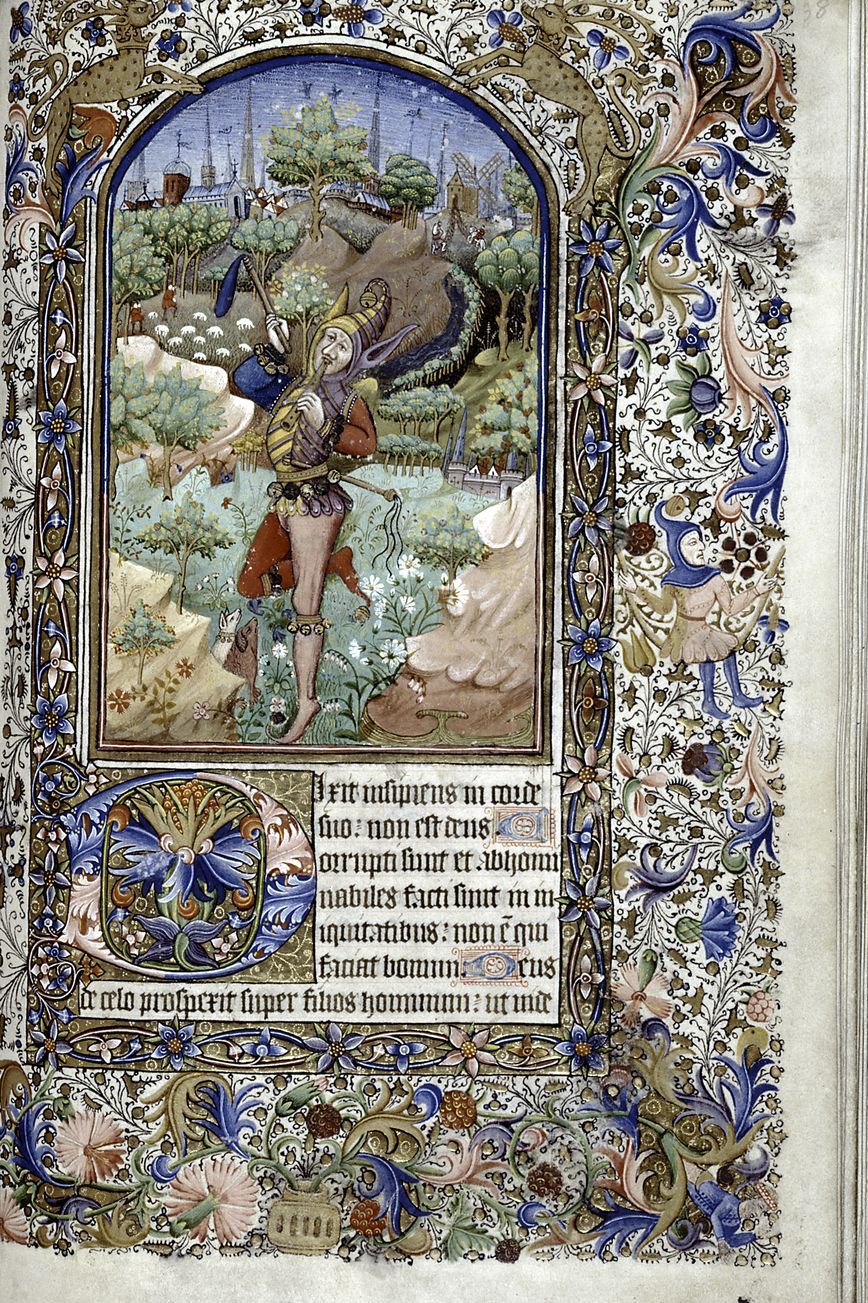 Dixit insipiens in corde
suo: non est deus. C
orrupti sunt et abhomi
nabiles facti sunt in in
iquitatibus: non ē qui
faciat bonum. Deus
de celo prospexit super filios hominum: ut uide
38